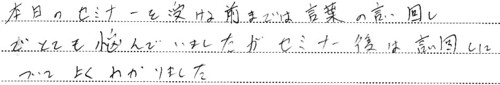 本日のセミナーを受ける前までは言葉の言い回し
でとても悩んでいましたがセミナー後は言い回しに
ついてよくわかりました